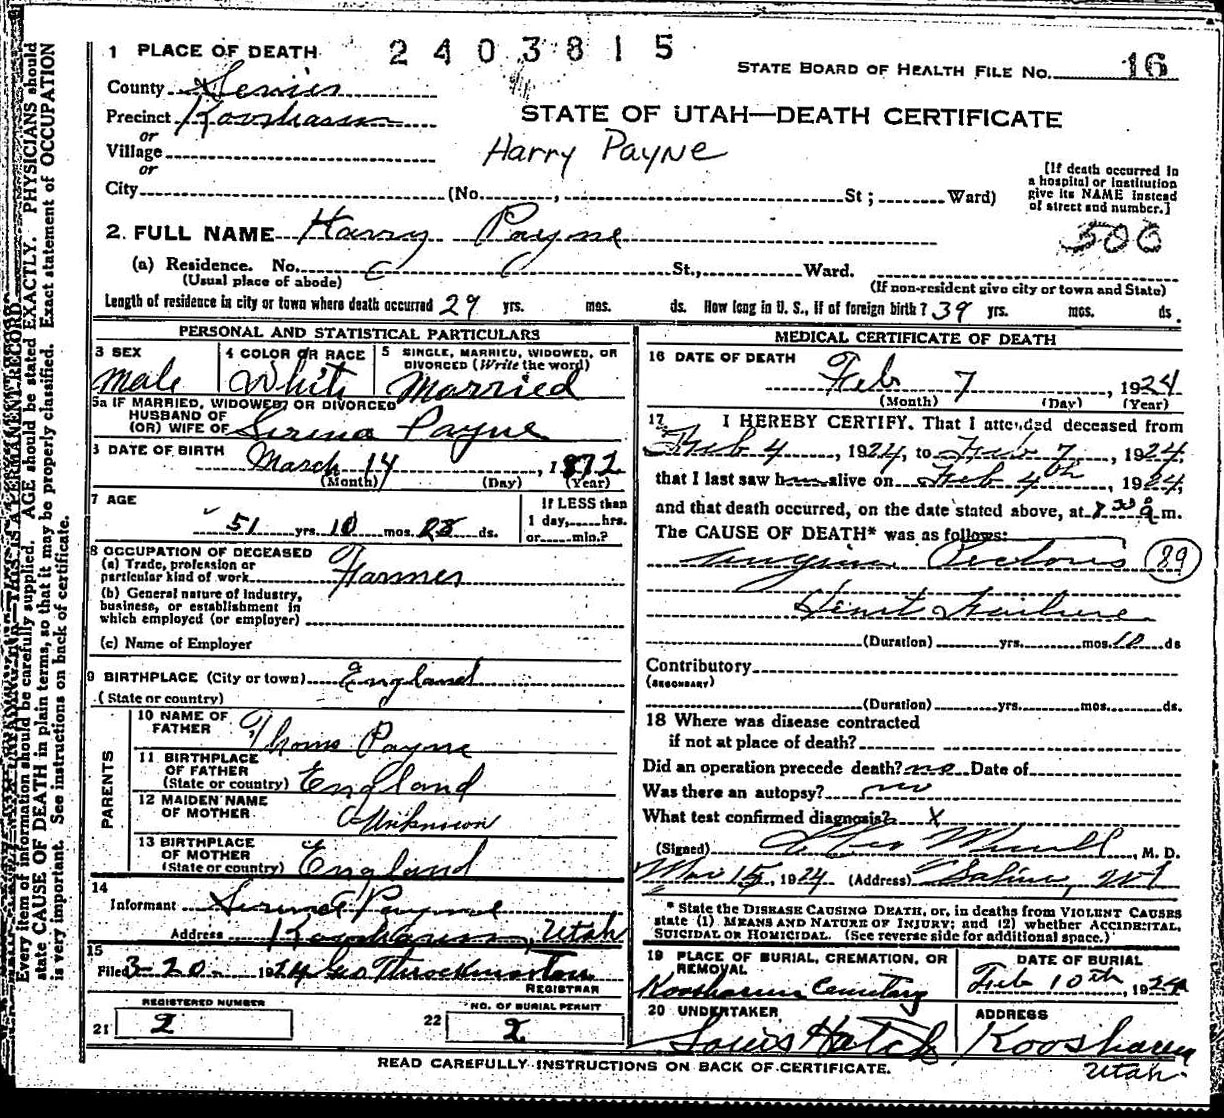 2403815
1 PLACE OF DEATH
STATE BOARD OF HEALTH FILE NO. 16
County Sevier
STATE OF UTAH—DEATH CERTIFICATE
Precinct Koosharem
or
Village
Harry Payne
or
City (No. , St; Ward)
[If death occurred in a hospital or institution give its NAME instead of street and number.]
506
2. FULL NAME Harry Payne
(a) Residence. No. St., Ward.
(Usual place of abode)
(If non-resident give city or town and State)
Length of residence in city or town where death occurred 29 yrs. mos. ds. How long in U. S., if of foreign birth? 39 yrs. mos. ds.
PERSONAL AND STATISTICAL PARTICULARS
3 SEX
Male
4 COLOR OR RACE
White
5 SINGLE, MARRIED, WIDOWED, OR DIVORCED (Write the word)
Married
5a IF MARRIED, WIDOWED, OR DIVORCED
HUSBAND OF
(OR) WIFE OF Serena Payne
6 DATE OF BIRTH
March 14, 1872
(Month) (Day) (Year)
7 AGE
51 yrs. 10 mos. ds.
If LESS than
1 day, hrs.
or min.?
8 OCCUPATION OF DECEASED
(a) Trade, profession or
particular kind of work Farmer
(b) General nature of Industry,
business, or establishment in
which employed (or employer)
(c) Name of Employer
9 BIRTHPLACE (City or town) England
(State or country)
PARENTS
10 NAME OF
FATHER Payne
11 BIRTHPLACE
OF FATHER
(State or country) England
12 MAIDEN NAME
OF MOTHER Unknown
13 BIRTHPLACE
OF MOTHER
(State or country) England
14
Informant Payne
Address Koosharem, Utah
15
Filed 3-20- 1924 Geo Throckmorton
REGISTRAR
REGISTERED NUMBER
21 2
NO. OF BURIAL PERMIT
22 2
MEDICAL CERTIFICATE OF DEATH
16 DATE OF DEATH
Feb 7, 1924
(Month) (Day) (Year)
17 I HEREBY CERTIFY, That I attended deceased from
Feb 4, 1924, to Feb 7, 1924,
that I last saw h alive on Feb 4th, 1924,
and that death occurred, on the date stated above, at m.
The CAUSE OF DEATH* was as follows:
Angina Pectoris 89
Heart Failure
(Duration) yrs. mos. 10 ds
Contributory
(SECONDARY)
(Duration) yrs. mos. ds.
18 Where was disease contracted
if not at place of death?
Did an operation precede death? no Date of
Was there an autopsy? no
What test confirmed diagnosis? x
(Signed) , M. D.
Mar 15, 1924 (Address) Salina, Ut
* State the DISEASE CAUSING DEATH, or, in deaths from VIOLENT CAUSES
state (1) MEANS AND NATURE OF INJURY; and (2) whether ACCIDENTAL,
SUICIDAL OR HOMICIDAL. (See reverse side for additional space.)
19 PLACE OF BURIAL, CREMATION, OR
REMOVAL
Koosharem Cemetery
DATE OF BURIAL
Feb 10th, 1924
20 UNDERTAKER
Louis Hatch
ADDRESS
Koosharem
Utah.
READ CAREFULLY INSTRUCTIONS ON BACK OF CERTIFICATE.
THIS IS A PERMANENT RECORD
Every item of information should be carefully supplied. AGE should be stated EXACTLY. PHYSICIANS should
state CAUSE OF DEATH in plain terms, so that it may be properly classified. Exact statement of OCCUPATION
is very important. See instructions on back of certificate.